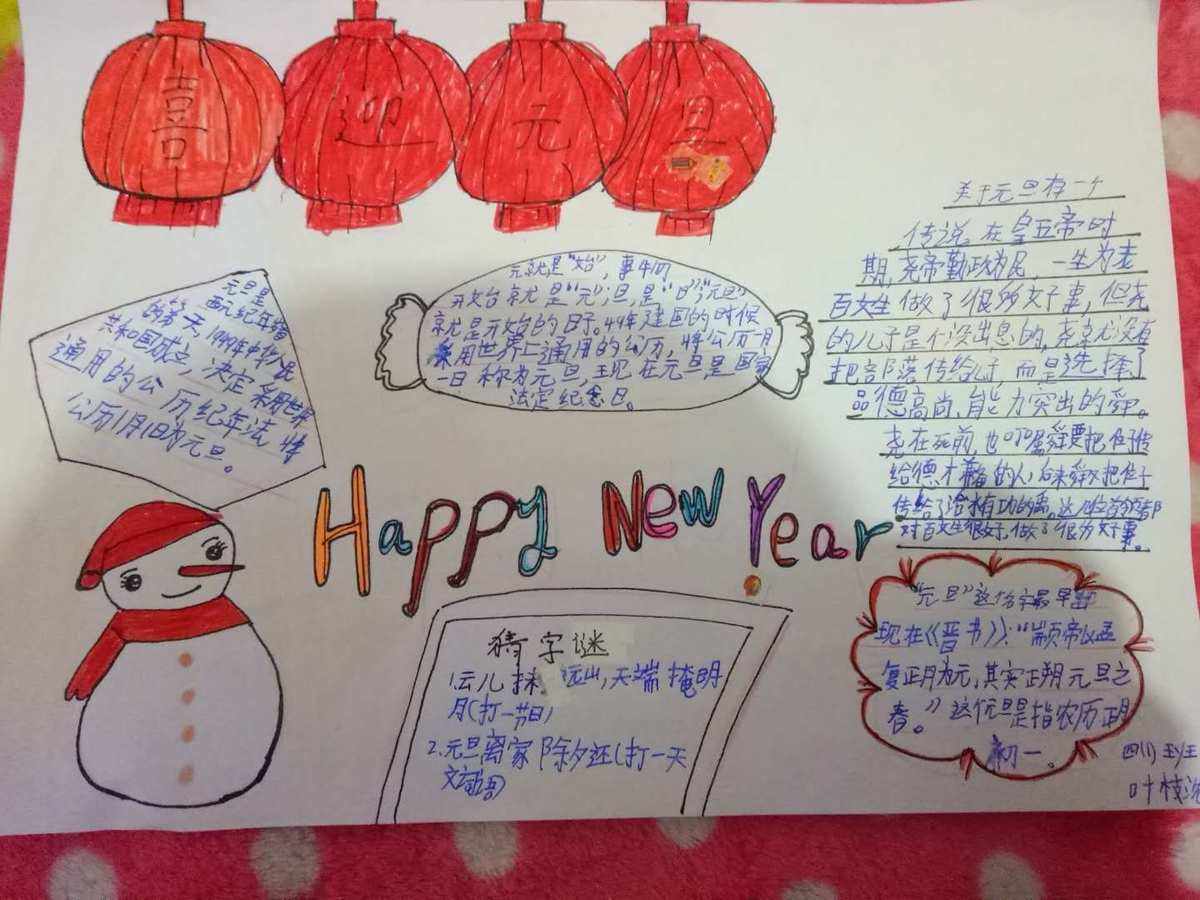 喜迎元旦
元旦是
西元纪年的
的第一天1949年中华人民
共和国成立,决定采用世界
通用的公历纪年法,将
公历1月1日为元旦。
元就是“始”,事物的
开始台就是“元”;旦,是“日”;“元旦”
就是开始的日子。49年建国的时候
采用世界上通用的公历,将公历一月
一日称为元旦,现在元旦是国家
法定纪念日。
关于元旦有一个
传说,在皇五帝时
期,尧帝勤政为民,一生为老
百姓做了很多好事,但尧
的儿子是个没出息的,尧就没有
把部落传给儿子,而是选择了
品德高尚、能力突出的舜。
尧在死前,也叮嘱舜要把位子传
给德才兼备的人,后来舜又把位子
传给了治水有功的禹,这几位首领都
对百姓很好,做了很多好事。
Happy New Year
猜字谜
1.云儿抹 远山,天端掩明
月(打一节日)
2.元旦离家除夕还(打一天
文短语)
“元旦”这个字最早出
现在《晋书》:“颛帝以孟
夏正月为元,其实正朔元旦之
春。”这个元旦是指农历正月
初一。
四(1)班
叶枝